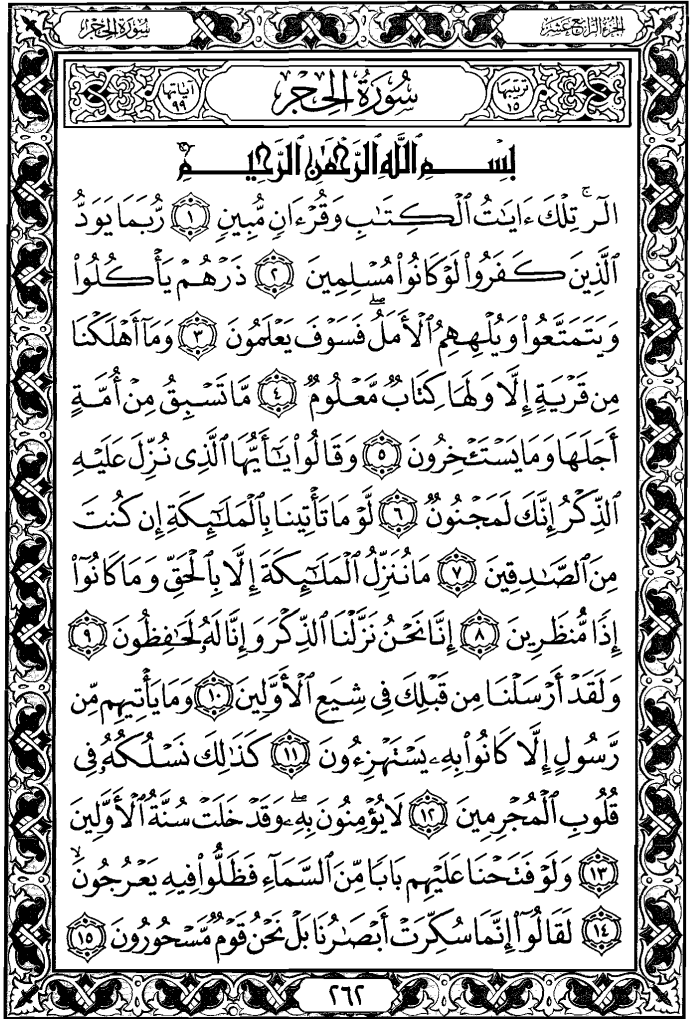 سُورَةُ الحِجر
الجزء الرابع عشر
سُورَةُ الحِجْر
ترتيبها ١٥
آياتها ٩٩
بِسْمِ ٱللَّهِ ٱلرَّحْمَٰنِ ٱلرَّحِيمِ
الٓر ۚ تِلْكَ ءَايَٰتُ ٱلْكِتَٰبِ وَقُرْءَانٍ مُّبِينٍ ۝١ رُّبَمَا يَوَدُّ
ٱلَّذِينَ كَفَرُوا۟ لَوْ كَانُوا۟ مُسْلِمِينَ ۝٢ ذَرْهُمْ يَأْكُلُوا۟
وَيَتَمَتَّعُوا۟ وَيُلْهِهِمُ ٱلْأَمَلُ ۖ فَسَوْفَ يَعْلَمُونَ ۝٣ وَمَآ أَهْلَكْنَا
مِن قَرْيَةٍ إِلَّا وَلَهَا كِتَابٌ مَّعْلُومٌ ۝٤ مَّا تَسْبِقُ مِنْ أُمَّةٍ
أَجَلَهَا وَمَا يَسْتَـْٔخِرُونَ ۝٥ وَقَالُوا۟ يَٰٓأَيُّهَا ٱلَّذِى نُزِّلَ عَلَيْهِ
ٱلذِّكْرُ إِنَّكَ لَمَجْنُونٌ ۝٦ لَّوْ مَا تَأْتِينَا بِٱلْمَلَٰٓئِكَةِ إِن كُنتَ
مِنَ ٱلصَّٰدِقِينَ ۝٧ مَا نُنَزِّلُ ٱلْمَلَٰٓئِكَةَ إِلَّا بِٱلْحَقِّ وَمَا كَانُوٓا۟
إِذًا مُّنظَرِينَ ۝٨ إِنَّا نَحْنُ نَزَّلْنَا ٱلذِّكْرَ وَإِنَّا لَهُۥ لَحَٰفِظُونَ ۝٩
وَلَقَدْ أَرْسَلْنَا مِن قَبْلِكَ فِى شِيَعِ ٱلْأَوَّلِينَ ۝١٠ وَمَا يَأْتِيهِم مِّن
رَّسُولٍ إِلَّا كَانُوا۟ بِهِۦ يَسْتَهْزِءُونَ ۝١١ كَذَٰلِكَ نَسْلُكُهُۥ فِى
قُلُوبِ ٱلْمُجْرِمِينَ ۝١٢ لَا يُؤْمِنُونَ بِهِۦ ۖ وَقَدْ خَلَتْ سُنَّةُ ٱلْأَوَّلِينَ
۝١٣ وَلَوْ فَتَحْنَا عَلَيْهِم بَابًا مِّنَ ٱلسَّمَآءِ فَظَلُّوا۟ فِيهِ يَعْرُجُونَ ۙ
۝١٤ لَقَالُوٓا۟ إِنَّمَا سُكِّرَتْ أَبْصَٰرُنَا بَلْ نَحْنُ قَوْمٌ مَّسْحُورُونَ ۝١٥
٢٦٢